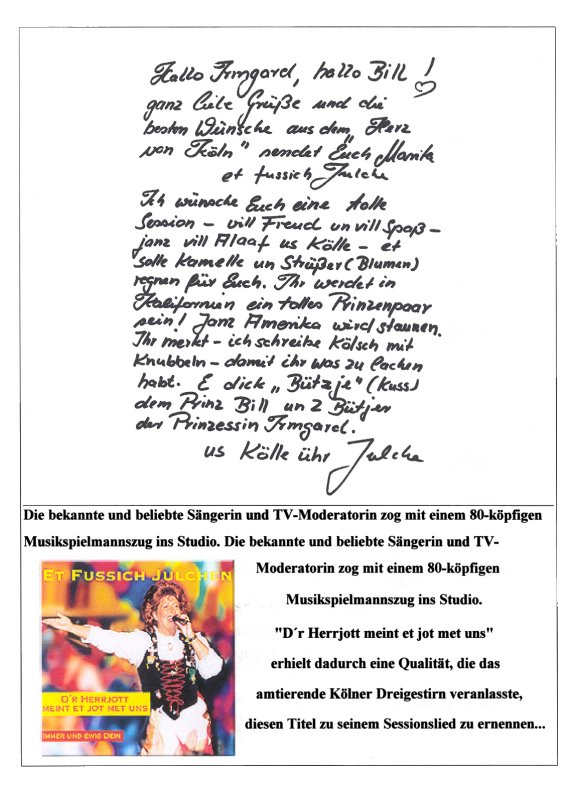 Hallo Irmgard, hallo Bill!
ganz liebe Grüße und die
besten Wünsche aus dem „Herz
von Köln" sendet Euch Marita
et fussich Julche
Ich wünsche Euch eine tolle
Session – vill Freud un vill Spaß –
janz vill Alaaf us Kölle – et
solle Kamelle un Strüßer (Blumen)
regnen für Euch. Ihr werdet in
Kalifornien ein tolles Prinzenpaar
sein! Janz Amerika wird staunen.
Ihr merkt – ich schreibe Kölsch mit
Knubbeln – damit ihr was zu lachen
habt. E dick „Bützje" (Kuss)
dem Prinz Bill un 2 Bützjer
der Prinzessin Irmgard.
us Kölle ühr Julche
Die bekannte und beliebte Sängerin und TV-Moderatorin zog mit einem 80-köpfigen
Musikspielmannszug ins Studio. Die bekannte und beliebte Sängerin und TV-
Moderatorin zog mit einem 80-köpfigen
Musikspielmannszug ins Studio.
"D´r Herrjott meint et jot met uns"
erhielt dadurch eine Qualität, die das
amtierende Kölner Dreigestirn veranlasste,
diesen Titel zu seinem Sessionslied zu ernennen...
ET FUSSICH JULCHEN
D'R HERRJOTT
MEINT ET JOT MET UNS
IMMER UND EWIG DEIN